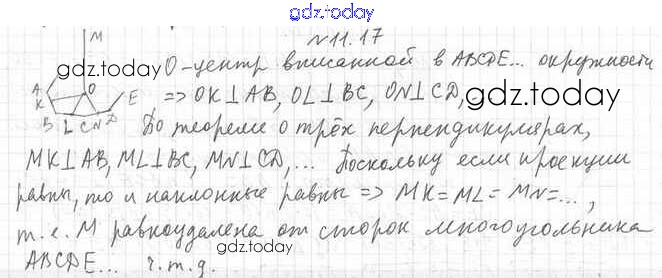 gdz.today
№11.17
M
gdz.today O-центр вписанной в ABCDE... окружности
A K O E B L C N D
=> OK⊥AB, OL⊥BC, ON⊥CD, gdz.today
По теореме о трёх перпендикулярах,
MK⊥AB, ML⊥BC, MN⊥CD, ... Поскольку если проекции
равны, то и наклонные равны => MK=ML=MN=...,
т.е. M равноудалена от сторон многоугольника
gdz.today
ABCDE... ч.т.д.